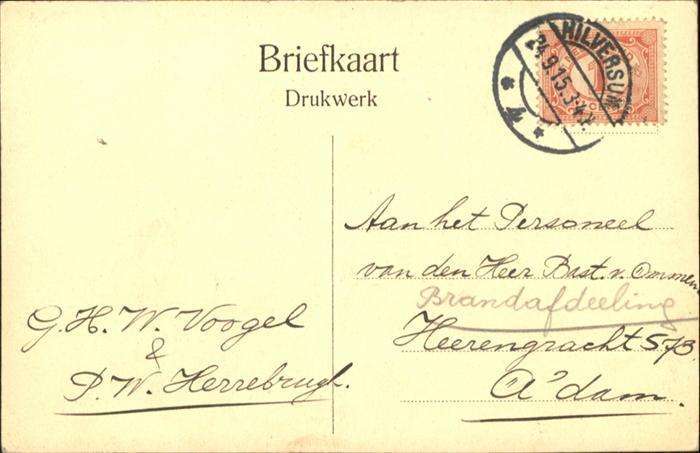 Briefkaart
Drukwerk
HILVERSUM
24.9.15.3-4N.
* 4 *
Aan het Personeel
van den Heer Bast. v. Ommen
Brandafdeeling
Heerengracht 573
A'dam.
G. H. W. Voogel
&
P. W. Herrebrugh.